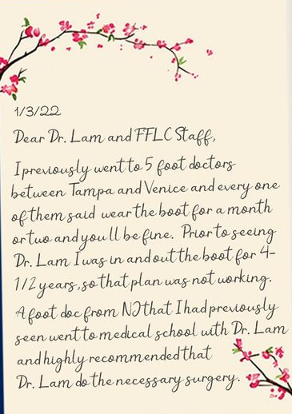 1/3/22
Dear Dr. Lam and FFLC Staff,
I previously went to 5 foot doctors
between Tampa and Venice and every one
of them said wear the boot for a month
or two and you'll be fine. Prior to seeing
Dr. Lam I was in and out the boot for 4-
1/2 years, so that plan was not working.
A foot doc from NJ that I had previously
seen went to medical school with Dr. Lam
and highly recommended that
Dr. Lam do the necessary surgery.